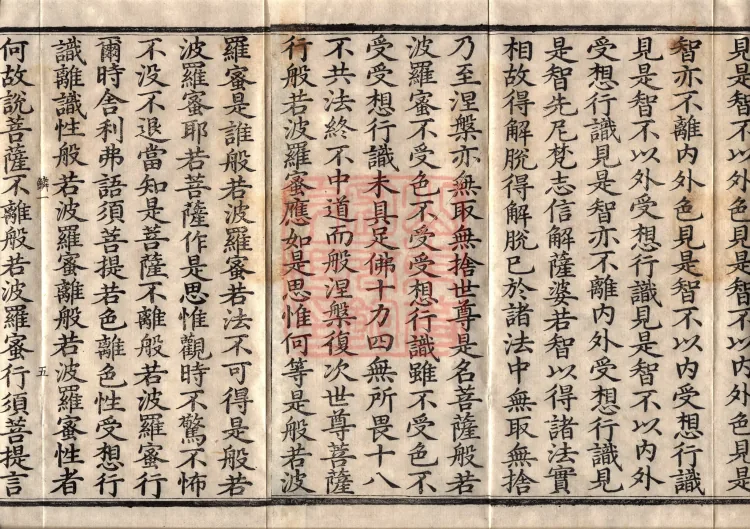 見是智不以外色見是智不以內外色見是
智亦不離內外色見是智不以內受想行識
見是智不以外受想行識見是智不以內外
受想行識見是智亦不離內外受想行識見
是智先尼梵志信解薩婆若智以得諸法實
相故得解脫得解脫已於諸法中無取無捨
乃至涅槃亦無取無捨世尊是名菩薩般若
波羅蜜不受色不受受想行識雖不受色不
受受想行識未具足佛十力四無所畏十八
不共法終不中道而般涅槃復次世尊菩薩
行般若波羅蜜應如是思惟何等是般若波
羅蜜是誰般若波羅蜜若法不可得是般若
波羅蜜耶若菩薩作是思惟觀時不驚不怖
不没不退當知是菩薩不離般若波羅蜜行
爾時舍利弗語須菩提若色離色性受想行
識離識性般若波羅蜜離般若波羅蜜性者
鱗一 五
何故說菩薩不離般若波羅蜜行須菩提言